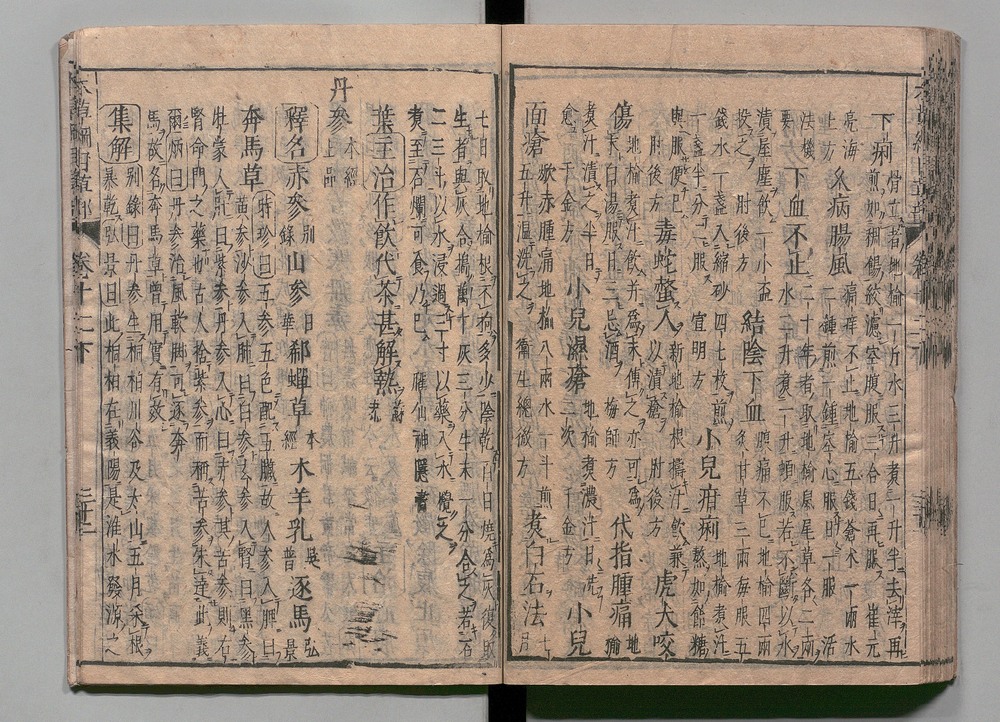 下痢骨立者地榆一斤水三升煮一升半去滓再
煎如稠餳絞濾空腹服三合日再服崔元
亮海上方 久病腸風痛痒不止地榆五錢蒼术一兩水
二鍾煎一鍾空心服日一服 活
法機要 下血不止二十年者取地榆鼠尾草各二兩
水二升煮一升頓服若不斷以水
漬屋塵飲一小盃
投之 肘後方 結陰下血腹痛不已地榆四兩
炙甘草三兩每服五
錢水一盞入縮砂四七枚煎
一盞半分二服 宣明方 小兒疳痢地榆煮汁
熬如飴糖
與服便已
肘後方 毒蛇螫人新地榆根擣汁飲兼
以漬瘡 肘後方 虎犬咬
傷地榆煮汁飲并爲末傅之亦可爲
末白湯服日三忌酒 梅師方 代指腫痛地
榆
煮汁漬之半日
愈 千金方 小兒濕瘡地榆煮濃汁日洗
二次 千金方 小兒
面瘡焮赤腫痛地榆八兩水一斗煎
五升温洗之 衞生總微方 煮白石法七
月
七日取地榆根不拘多少陰乾百日燒爲灰復取
生者與灰合搗萬下灰三分生末一分合之若石
二三斗以水浸過三寸以藥入水攪之
煮至石爛可食乃已 臞仙神隱書
葉主治作飲代茶甚解熱蘇
恭
丹參本經
上品
釋名赤參別
錄山參日
華郄蟬草本
經木羊乳吳
普逐馬弘
景
奔馬草時珍曰五參五色配五臟故人參入脾曰
黃參沙參入肺曰白參玄參入腎曰黑參
牡蒙入肝曰紫參丹參入心曰赤參其苦參則右
腎命門之藥也古人捨紫參而稱苦參未達此義
爾炳曰丹參治風軟脚可逐奔
馬故名奔馬草曾用實有效
集解別錄曰丹參生桐柏川谷及太山五月采根
暴乾弘景曰此桐柏在義陽是淮水發源之